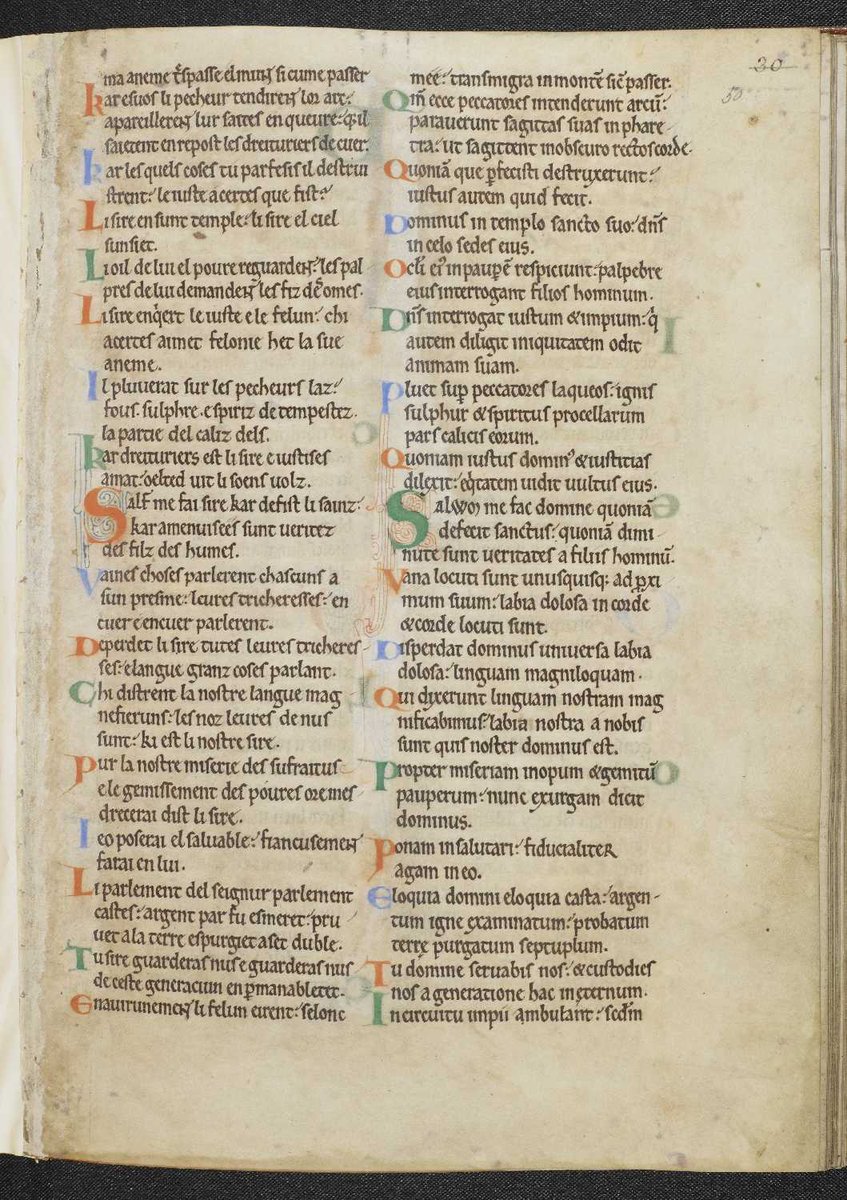 30
50
ma aneme t̃spasse el mund si cume passer
kar esuos li pecheur tendirent lor arc:
apareillerent lur saites en queure: q̃ il
saietent en repost les dreituriers de cuer.
kar les quels coses tu parfesis il destrui
strent: le iuste acertes que fist:
Li sire en sunt temple: li sire el ciel
sun siet.
Li oil de lui el poure reguardent: les pal
pres de lui demandent les fiz de omes.
Li sire enq̃ert le iuste e le felun: chi
acertes aimet felonie het la sue
aneme.
Il pluuerat sur les pecheurs laz:
fous. sulphre. espiriz de tempestez.
la partie del caliz dels.
kar dreituriers est li sire e iustises
amat: oelted uit li soens uolz.
Salf me fai sire kar defist li sainz:
kar amenuisees sunt veritez
des filz des humes.
Vaines choses parlerent chascuns a
sun presme: leures tricheresses: en
cuer e en cuer parlerent.
Deperdet li sire tutes leures tricheres
ses: e langue granz coses parlant.
Chi distrent la nostre langue mag
nefieruns: les noz leures de nus
sunt: ki est li nostre sire.
Pur la nostre miserie des sufraitus
e le gemissement des poures ore mes
drecerai dist li sire.
Ieo poserai el saluable: fiancusement
farai en lui.
Li parlement del seignur parlement
castes: argent par fu esmeret: pru
uet a la terre espurgiet a set duble.
Tu sire guarderas nus e guarderas nus
de ceste generaciun en p̲manabletet.
Enauirunement li felun eirent: selonc
mee: transmigra in monte sic̃ passer.
Qm̃ ecce peccatores intenderunt arcũ:
parauerunt sagittas suas in phare
tra: ut sagittent in obscuro rectos corde.
Quoniã que p̲fecisti destruxerunt:
iustus autem quid fecit.
Dominus in templo sancto suo: dñs
in celo sedes eius.
Ocl̃i ei' in paupẽ respiciunt: palpebre
eius interrogant filios hominum.
Dñs interrogat iustum & impium: q̃
autem diligit iniquitatem odit
animam suam.
Pluet sup̲ peccatores laqueos: ignis
sulphur & spiritus procellarum
pars calicis eorum.
Quoniam iustus domin' & iustitias
dilexit: eq̃tatem uidit uultus eius.
Salvum me fac domine quoniã
defecit sanctus: quoniã dimi
nute sunt ueritates a filiis hominũ.
Vana locuti sunt unusquisq: ad p̲xi
mum suum: labia dolosa in corde
& corde locuti sunt.
Disperdat dominus uniuersa labia
dolosa: linguam magniloquam.
Qui dixerunt linguam nostram mag
nificabimus: labia nostra a nobis
sunt quis noster dominus est.
Propter miseriam inopum & gemitũ
pauperum: nunc exurgam dicit
dominus.
Ponam in salutari: fiducialiter
agam in eo.
Eloquia domini eloquia casta: argen-
tum igne examinatum: probatum
terrę purgatum septuplum.
Tu domine seruabis nos: & custodies
nos a generatione hac in ęternum.
In circuitu impii ambulant: sedm̃